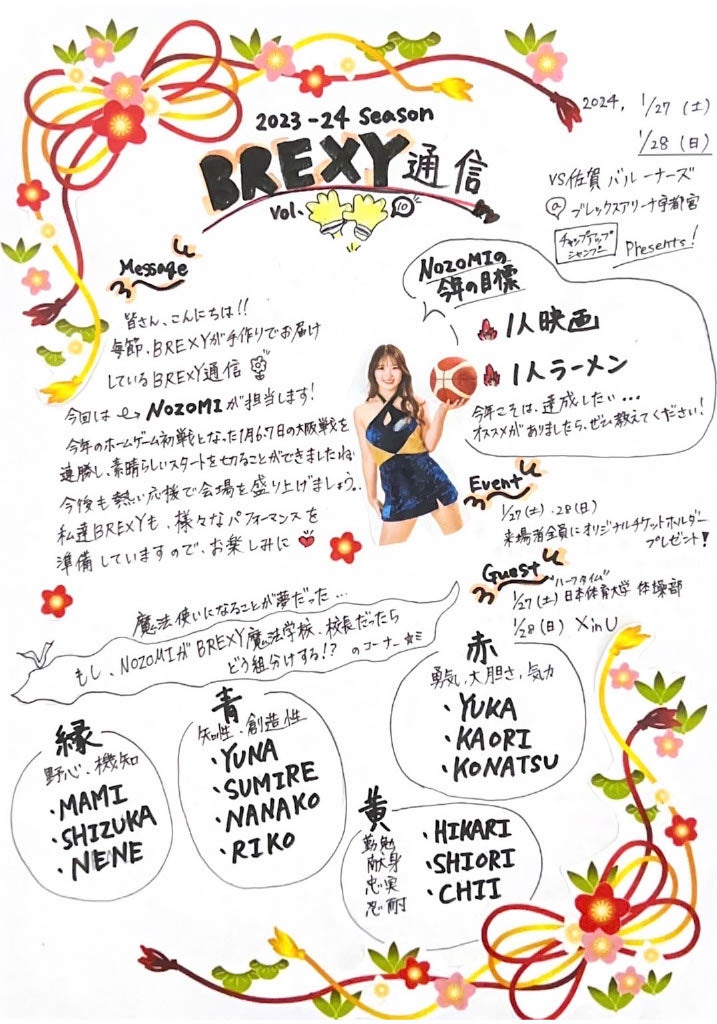 2023-24 Season
BREXY通信
Vol. 10
2024, 1/27(土)
1/28(日)
VS佐賀バルーナーズ
@ブレックスアリーナ宇都宮
チャップアップ
シャンプー
Presents!
Message
皆さん、こんにちは!!
毎節、BREXYが手作りでお届け
しているBREXY通信
今回は NOZOMIが担当します!
今年のホームゲーム初戦となった1月6・7日の大阪戦を
連勝し、素晴らしいスタートを切ることができましたね
今後も熱い応援で会場を盛り上げましょう。
私達BREXYも、様々なパフォーマンスを
準備していますので、お楽しみに
NOZOMIの
今年の目標
1人映画
1人ラーメン
今年こそは、達成したい...
オススメがありましたら、ぜひ教えてください!
Event
1/27(土)・28(日)
来場者全員にオリジナルチケットホルダー
プレゼント!
Guest
"ハーフタイム"
1/27(土) 日本体育大学 体操部
1/28(日) XinU
魔法使いになることが夢だった...
もし、NOZOMIがBREXY魔法学校、校長だったら
どう組分けする!? のコーナー☆ミ
縁
野心、機知
・MAMI
・SHIZUKA
・NENE
青
知性、創造性
・YUNA
・SUMIRE
・NANAKO
・RIKO
赤
勇気、大胆さ、気力
・YUKA
・KAORI
・KONATSU
黄
勤勉
献身
忠実
忍耐
・HIKARI
・SHIORI
・CHII